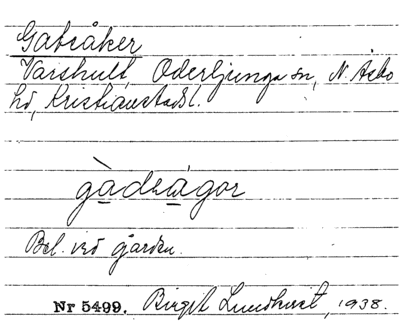 Gatsåker
Varshult, Oderljunga sn, N. Åsbo
hd, Kristianstads l.
gàdsågor
Bel. vid gården.
Nr 5499. Birgit Lundkvist, 1938.